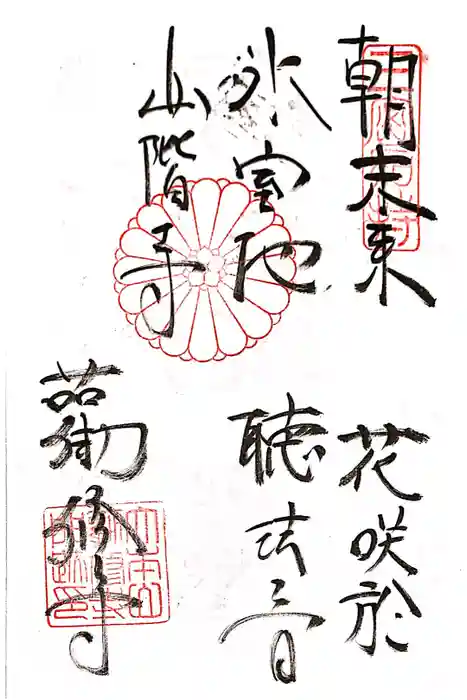 朝未来 花咲於
氷室池 聴法音
山階寺 勧修寺